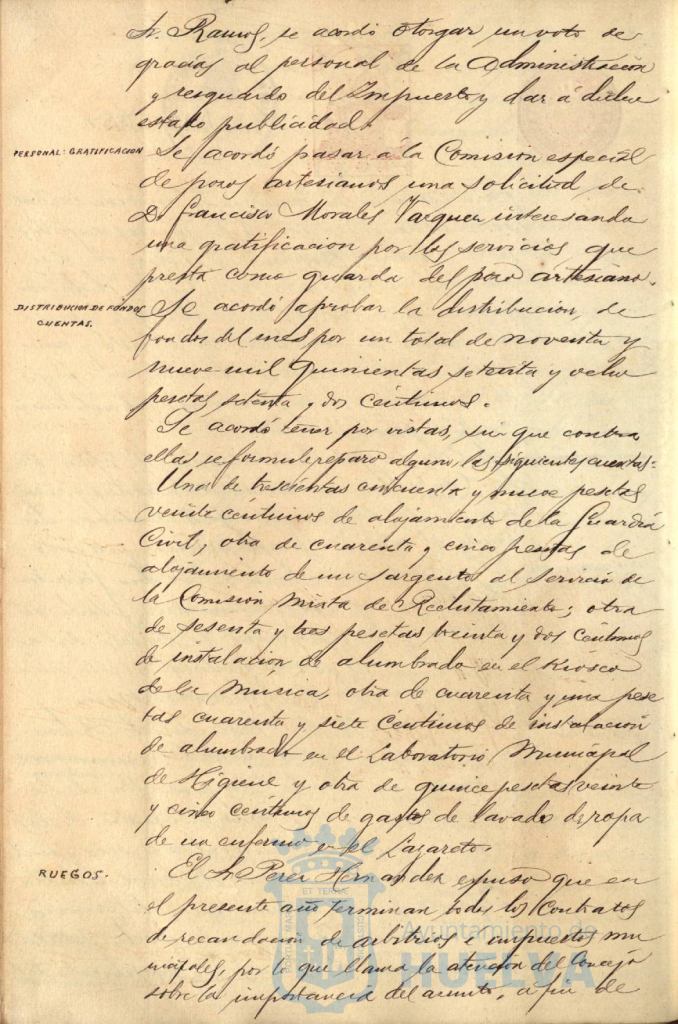 Sr. Ramos, se acordó otorgar un voto de
gracias al personal de la Administración
y resguardo del Impuesto y dar á dicho
estado publicidad.
PERSONAL: GRATIFICACION
Se acordó pasar á la Comisión especial
de pozos artesianos una solicitud de
Dn Francisco Morales Vazquez interesando
una gratificacion por los servicios que
presta como guarda del pozo artesiano.
DISTRIBUCION DE FONDOS
CUENTAS.
Se acordó aprobar la distribucion de
fondos del mes por un total de noventa y
nueve mil quinientas setenta y ocho
pesetas setenta y dos céntimos.
Se acordó tener por vistas, sin que contra
ellas se formule reparo alguno, las siguientes cuentas:
Una de trescientas cincuenta y nueve pesetas
veinte céntimos de alojamiento de la Guardia
Civil, otra de cuarenta y cinco pesetas de
alojamiento de un sargento al servicio de
la Comisión Mixta de Reclutamiento; otra
de sesenta y tres pesetas treinta y dos céntimos
de instalación de alumbrado en el Kiosco
de la Música, otra de cuarenta y una pese
tas cuarenta y siete céntimos de instalación
de alumbrado en el Laboratorio Municipal
de Higiene y otra de quince pesetas veinte
y cinco céntimos de gastos de lavado de ropa
de un enfermo en el Lazareto.
RUEGOS.
El Sr. Perez Hernandez expuso que en
el presente año terminan todos los contratos
de recaudación de arbitrios é impuestos mu
nicipales, por lo que llama la atención del Concejo
sobre la importancia del asunto, a fin de
Ayuntamiento de
HUELVA